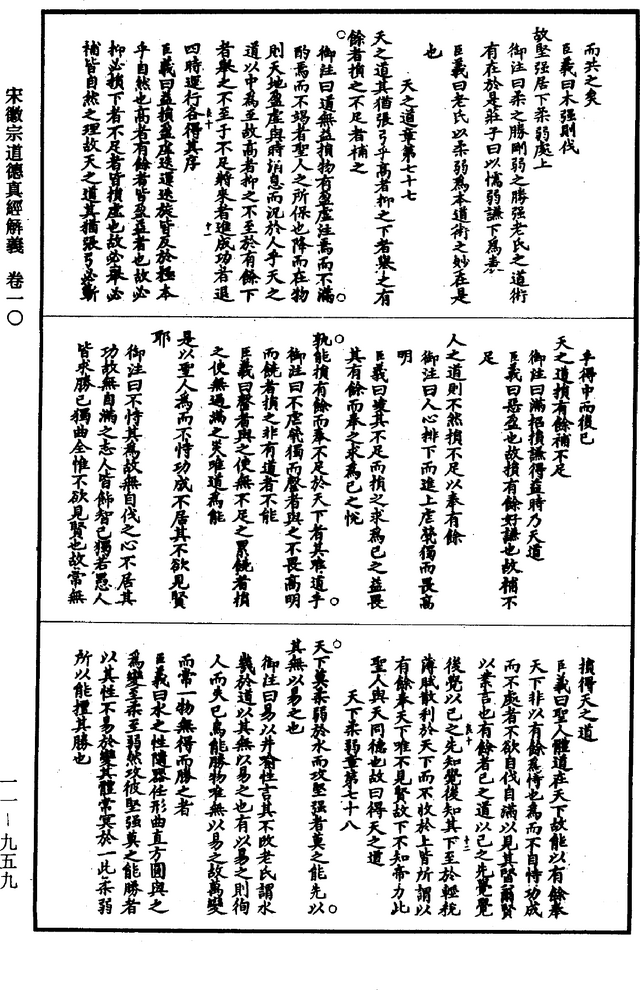 而共之矣
臣義曰木强則伐
故堅强居下柔弱處上
御注曰柔之勝剛弱之勝强老氏之道術
有在於是莊子曰以懦弱謙下爲表
臣義曰老氏以柔弱爲本道術之妙在是
也
天之道章第七十七
天之道其猶張弓乎高者抑之下者舉之有
餘者損之不足者補之
御注曰道無益損物有盈虛注焉而不滿
酌焉而不竭者聖人之所保也降而在物
則天地盈虛與時消息而況於人乎天之
道以中爲至故高者抑之不至於有餘下
者舉之不至于不足將來者進成功者退
四時運行各得其序
臣義曰益損盈虛迭運迭旋皆反於極本
乎自然也高者有餘者皆盈益者也故必
抑必損下者不足者皆損虛也故必舉必
補皆自然之理故天之道其猶張弓必斲
乎得中而後已
天之道損有餘補不足
御注曰滿招損謙得益時乃天道
臣義曰惡盈也故損有餘好謙也故補不
足
人之道則不然損不足以奉有餘
御注曰人心排下而進上虐煢獨而畏高
明
臣義曰虐其不足而損之求爲己之益畏
其有餘而奉之求爲己之悅
孰能損有餘而奉不足於天下者其唯道乎
御注曰不虐煢獨而罄者與之不畏高明
而饒者損之非有道者不能
臣義曰罄者與之使無不足之累饒者損
之使無過滿之災唯道爲能
是以聖人爲而不恃功成不居其不欲見賢
耶
御注曰不恃其爲故無自伐之心不居其
功故無自滿之志人皆飾智己獨若愚人
皆求勝己獨曲全惟不欲見賢也故常無
損得天之道
臣義曰聖人體道在天下故能以有餘奉
天下非以有餘爲恃也爲而不自恃功成
而不處者不欲自伐自滿以見其賢爾賢
以業言也有餘者己之道以己之先覺覺
後覺以己之先知覺後知其下至於輕稅
薄賦散利於天下而不收於上皆所謂以
有餘奉天下唯不見賢故下不知帝力此
聖人與天同德也故曰得天之道
天下柔弱章第七十八
天下莫柔弱於水而攻堅强者莫之能先以
其無以易之也
御注曰易以井喻性言其不改老氏謂水
幾於道以其無以易之也有以易之則徇
人而失己烏能勝物唯無以易之故萬變
而常一物無得而勝之者
臣義曰水之性隨器任形曲直方圓與之
爲變至柔至弱然攻彼堅强莫之能勝者
以其性不易於變其體常冥於一此柔弱
所以能擅其勝也
宋徽宗道德真經解義 卷一〇
一一－九五九